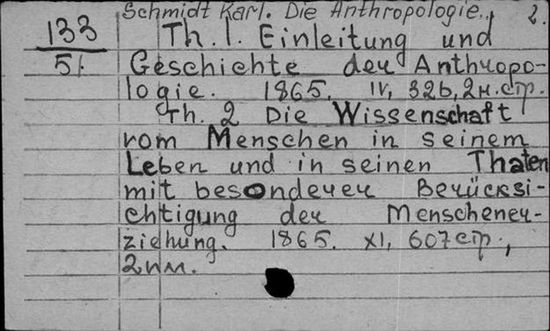 Schmidt Karl. Die Anthropologie.
2.
133
51.
Th. 1. Einleitung und
Geschichte der Anthropo-
logie. 1865. IV, 326, 2н.стр.
Th. 2 Die Wissenschaft
vom Menschen in seinem
Leben und in seinen Thaten
mit besonderer Berücksi-
chtigung der Menschener-
ziehung. 1865. XI, 607 стр.,
2нм.